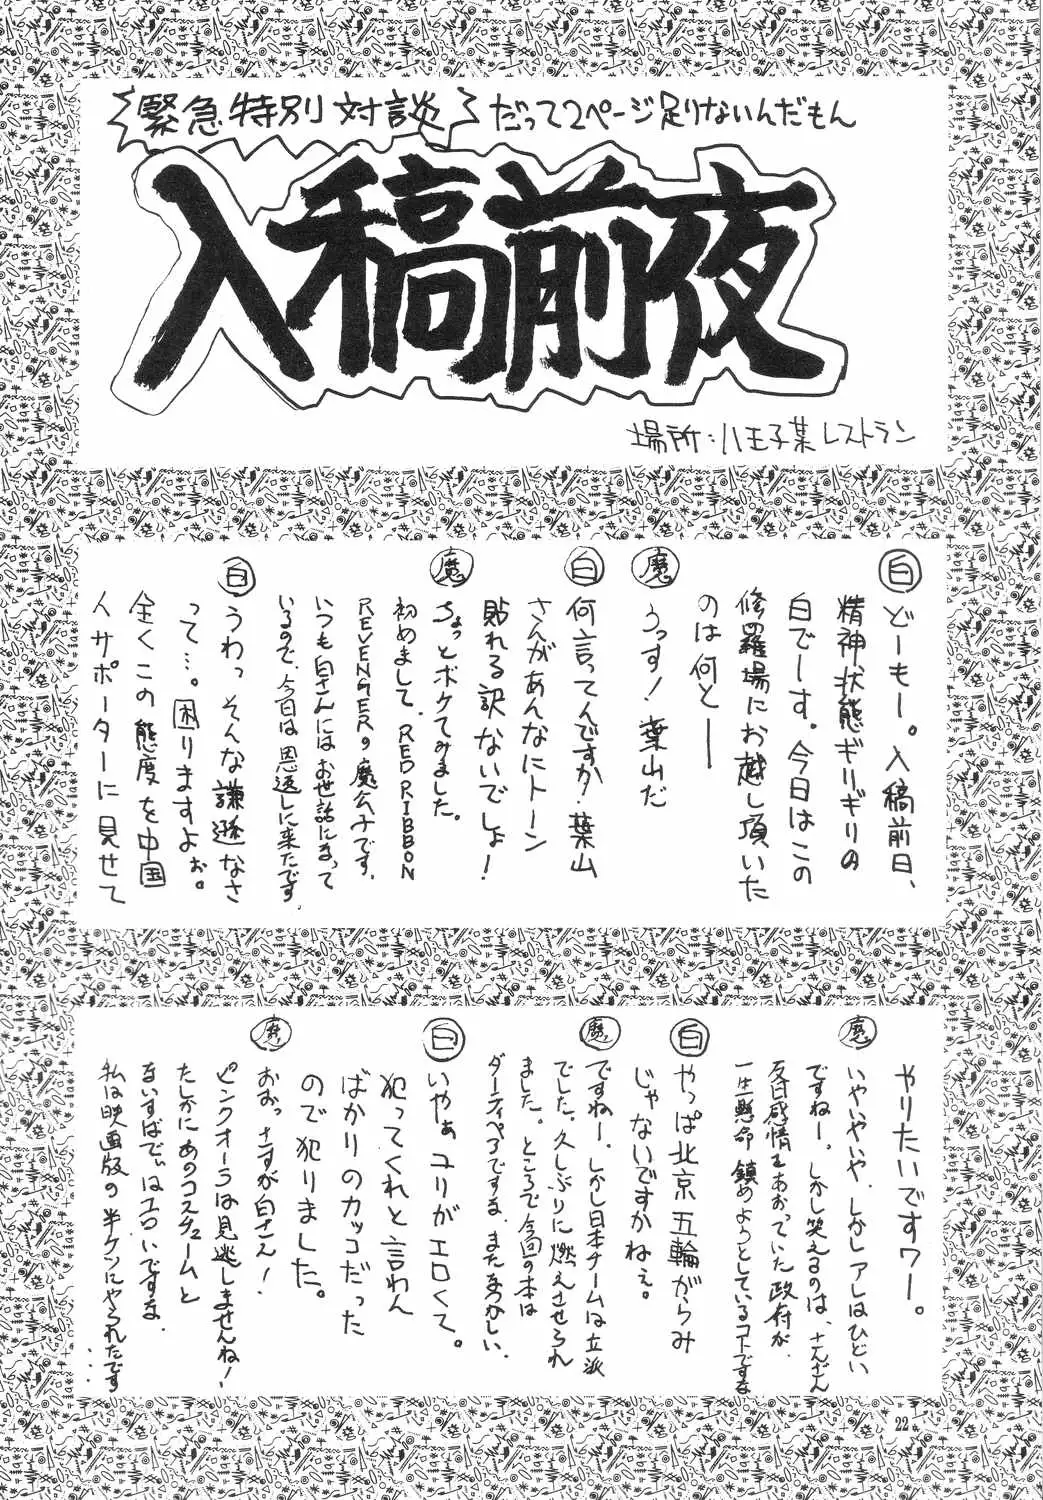 緊急特別対談 だって2ページ足りないんだもん
入稿前夜
場所:八王子某レストラン
白 どーもー。入稿前日、
精神状態ギリギリの
白でーす。今日はこの
修羅場にお越し頂いた
のは何とー
魔 うっす!葉山だ
白 何言ってんですか?葉山
さんがあんなにトーン
貼れる訳ないでしょ!
魔 ちょっとボケてみました。
初めまして、RED RIBBON
REVENGERの魔公子です。
いつも白さんにはお世話になって
いるので、今日は恩返しに来たです。
白 うわっ そんな謙遜なさ
って…。困りますよぉ。
全くこの態度を中国
人サポーターに見せて
やりたいですワー。
魔 いやいやいや、しかしアレはひどい
ですねー。しかし笑えるのは、さんざん
反日感情をあおっていた政府が、
一生懸命 鎮めようとしているコトですな
白 やっぱ北京五輪がらみ
じゃないですかねぇ。
魔 ですねー。しかし日本チームは立派
でした。久しぶりに燃えさせられ
ました。ところで今回の本は
ダーティペアですな。またなつかしい。
白 いやぁ ユリがエロくて。
犯ってくれと言わん
ばかりのカッコだった
ので犯りました。
魔 おおっ さすが白さん!
ピンクオーラは見逃しませんね!
たしかにあのコスチュームと
ないすばでぃはエロいですな
私は映画版の半ケツにやられたです…
22